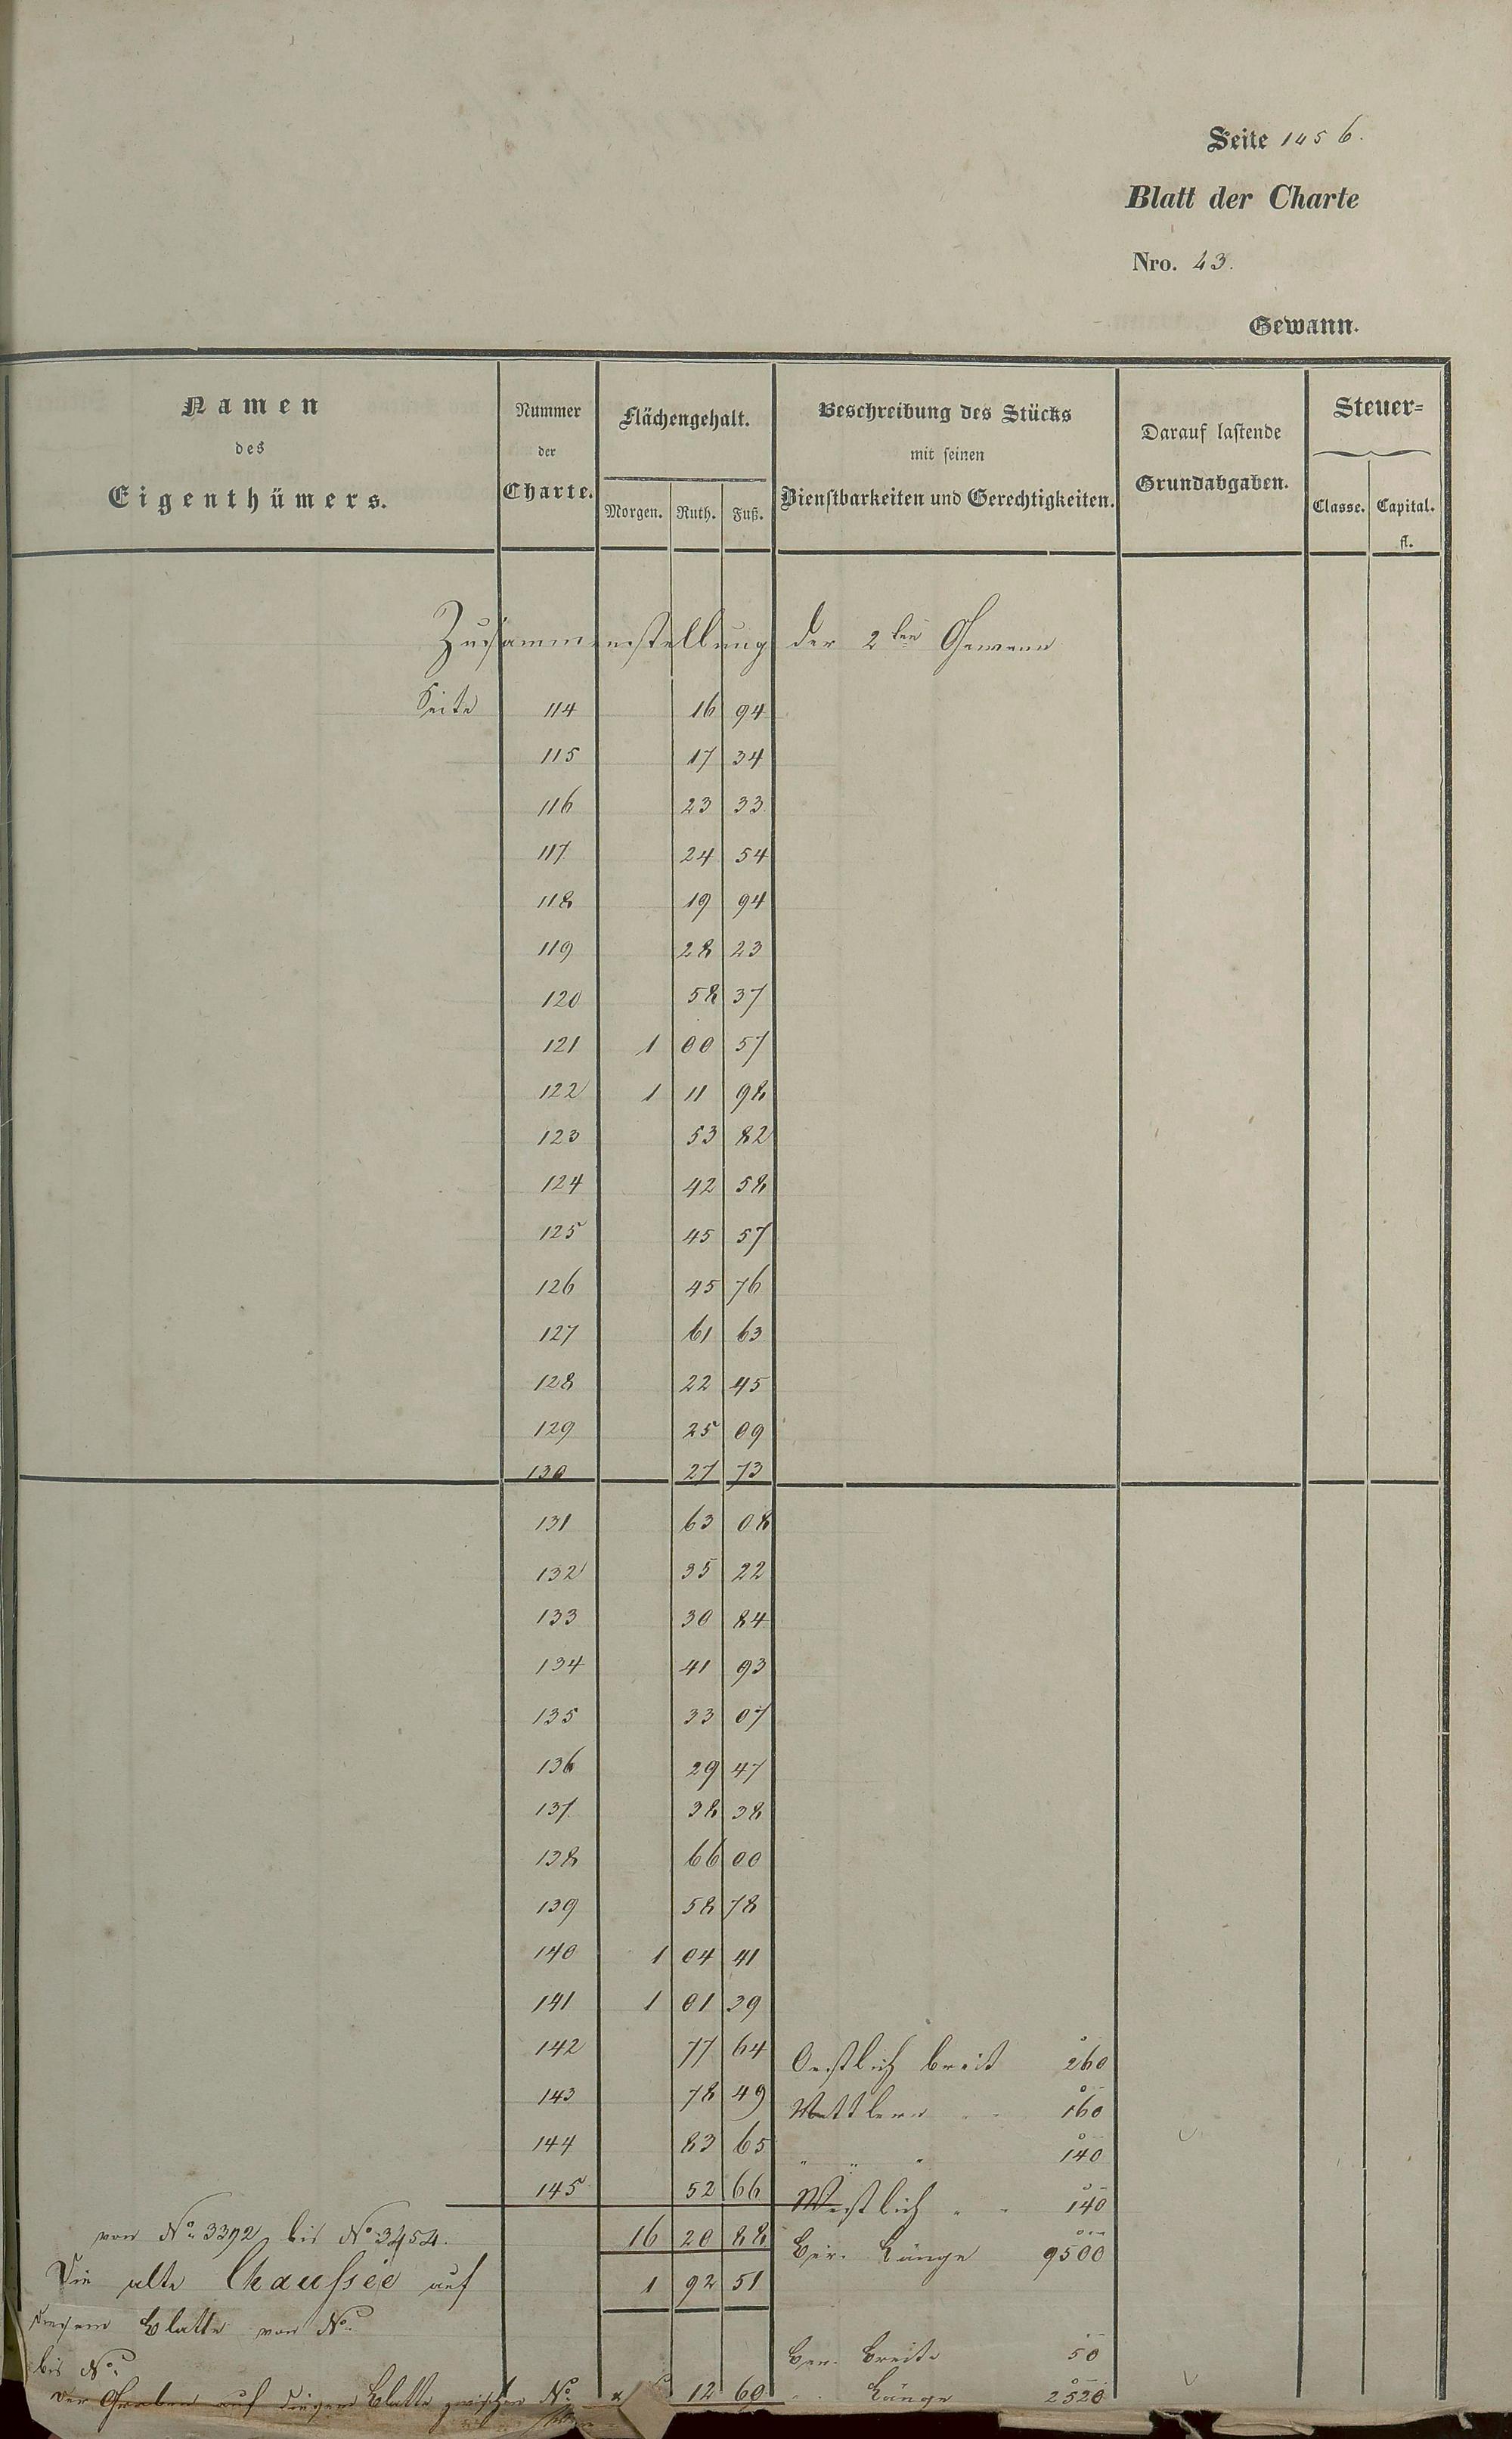 Seite 1456.
Blatt der Charte
Nro. 43.
Gewann.
Namen des Eigenthümers.
Nummer der Charte.
Flächengehalt.
Morgen. Ruth. Fuß.
Beschreibung des Stücks mit seinen Dienstbarkeiten und Gerechtigkeiten.
Darauf lastende Grundabgaben.
Steuer=
Classe. Capital. fl.
Zusammenstellung der 2ten Gewann
Seite 114 16 94
115 17 34
116 23 33
117 24 54
118 19 94
119 28 23
120 58 37
121 1 00 57
122 1 11 98
123 53 82
124 42 58
125 45 57
126 45 76
127 61 63
128 22 45
129 25 09
130 27 73
131 63 08
132 35 22
133 30 84
134 41 93
135 33 07
136 29 47
137 38 38
138 66 00
139 58 78
140 1 04 41
141 1 01 39
142 77 64 Oestlich breit 260
143 78 49 Mittlere " " 160
144 83 65 " " " 140
145 52 66 Westlich " " 140
von No. 3392 bis No. 3454. 16 20 88 Ber. Länge 9500
Die alte Chaussée auf 1 92 51
diesem Blatte von No.
bis No. Ber. Breite 50
der Graben auf diesem Blatte zwischen No. 12 60 " Länge 2520